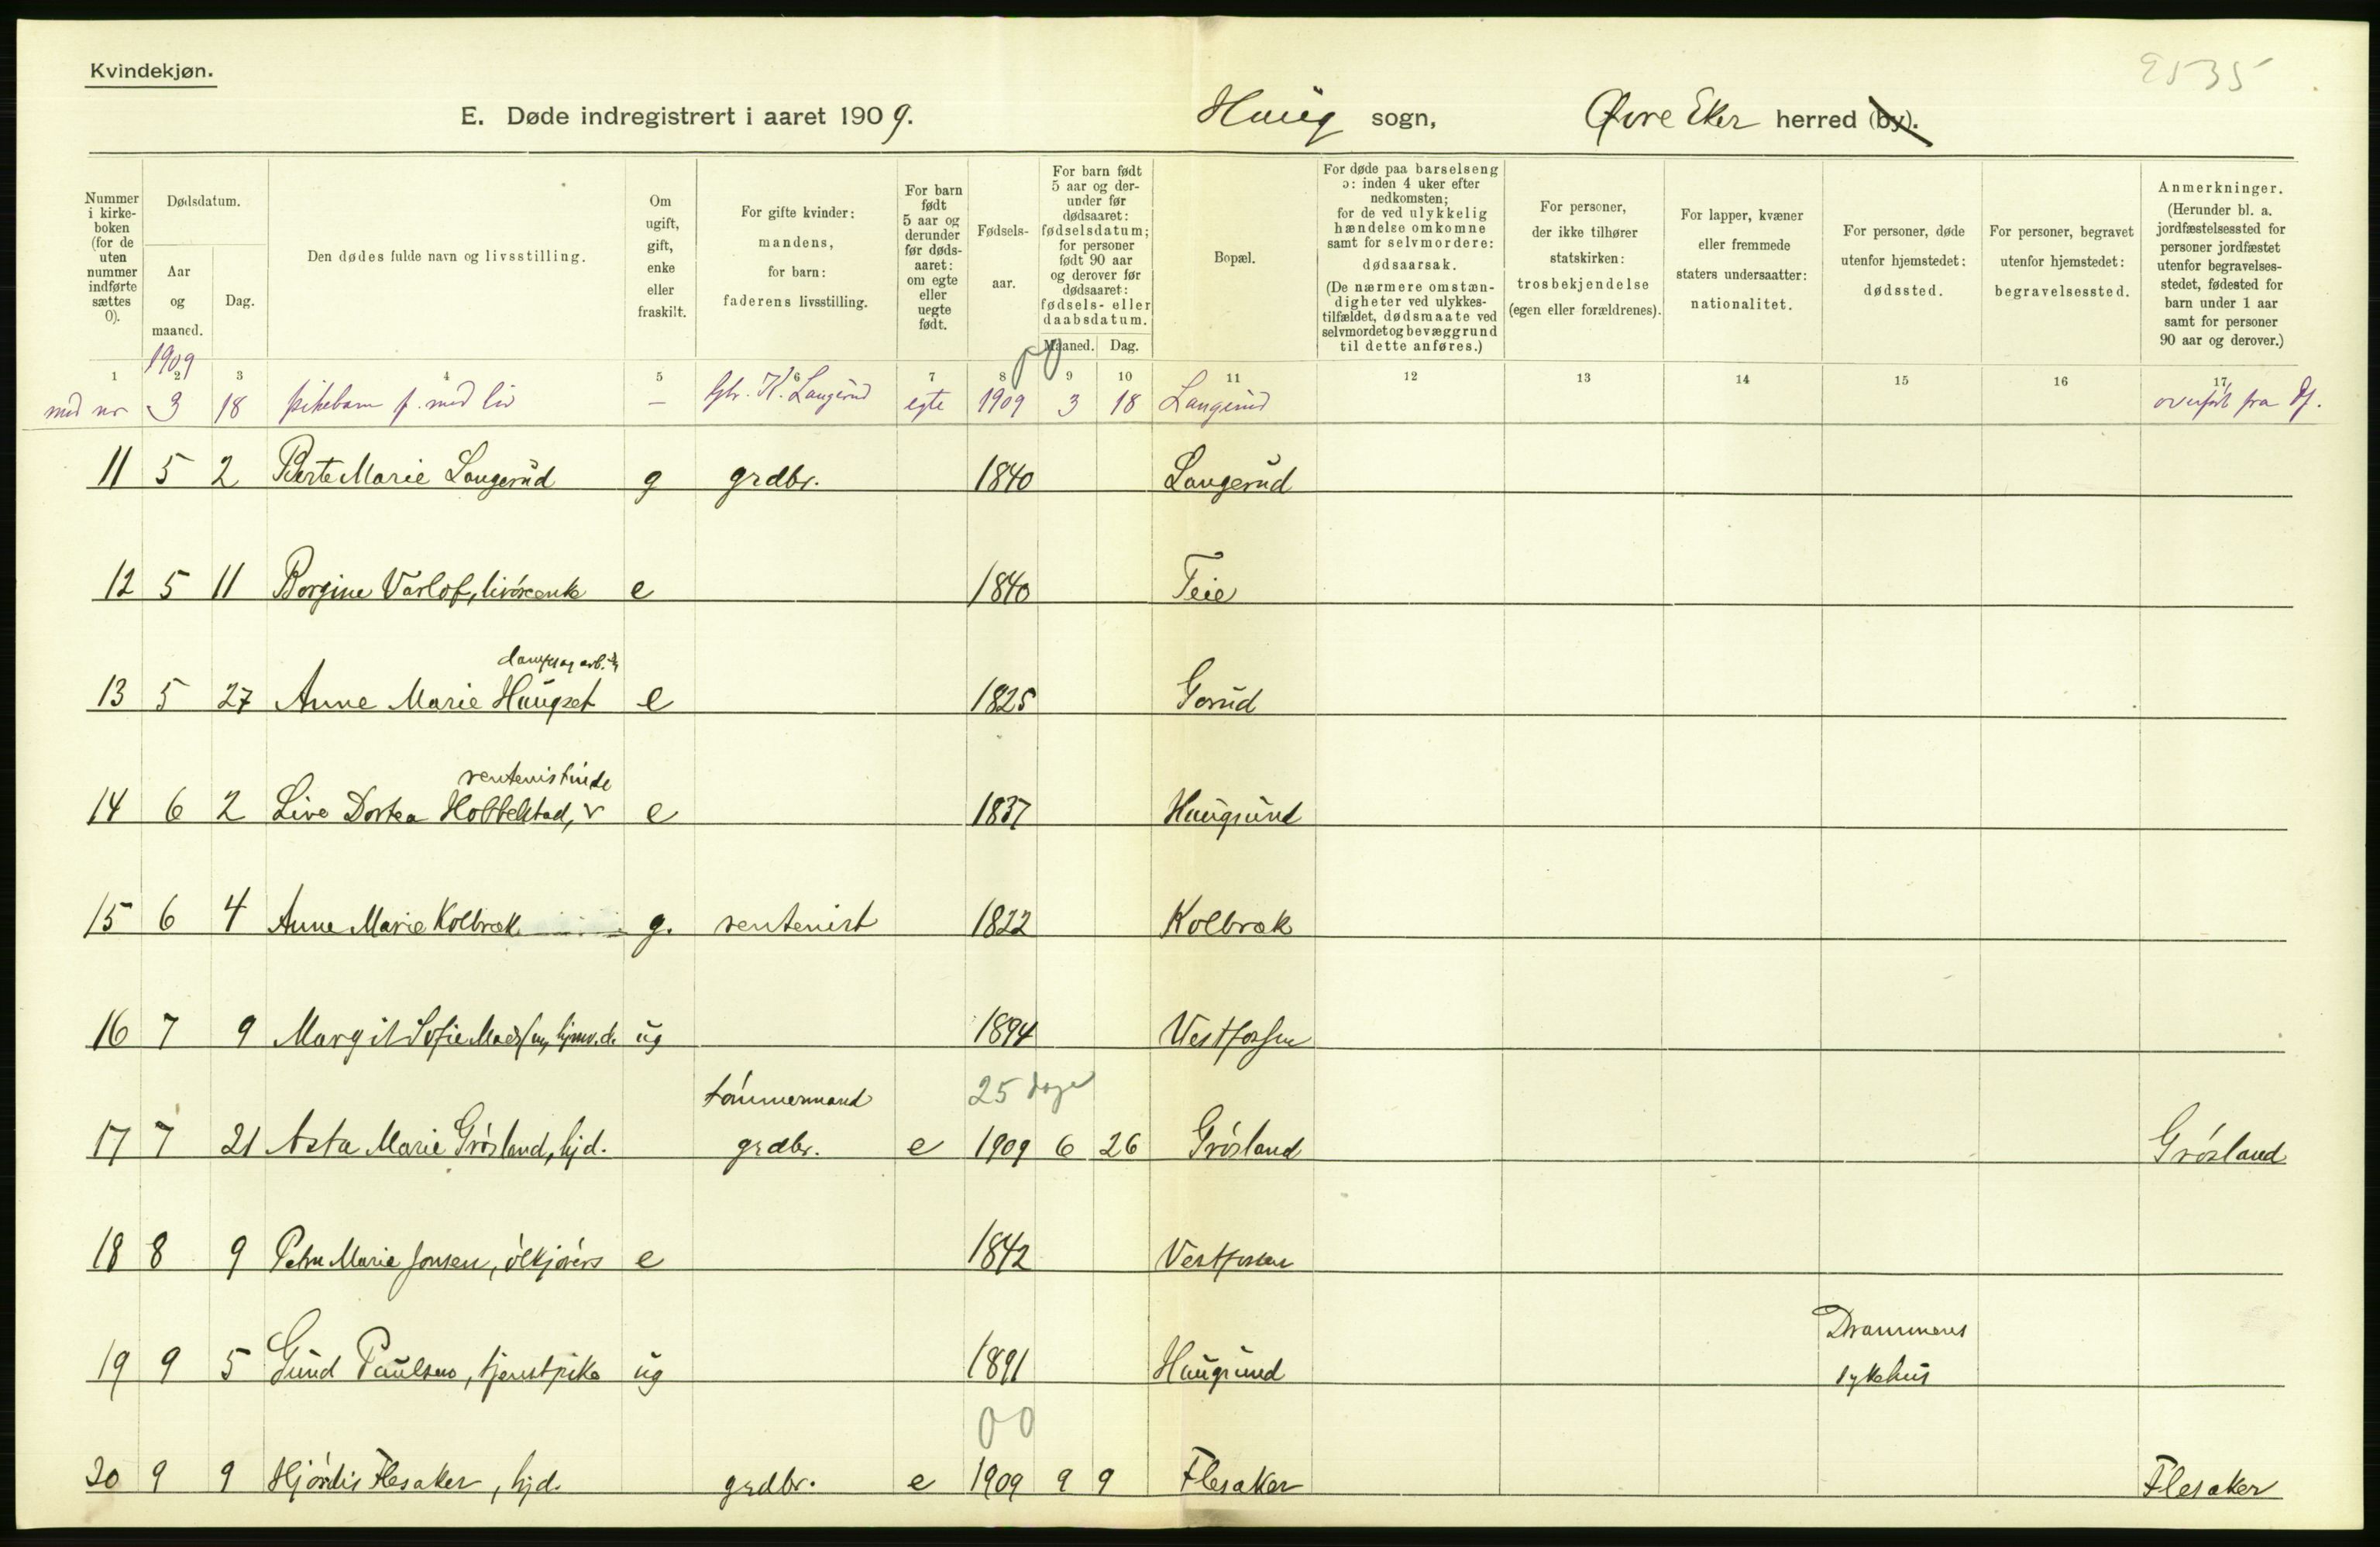 Kvindekjøn.
E. Døde indregistrert i aaret 1909.
Haug sogn, Øvre Eker herred (by).
Nummer i kirkeboken (for de uten nummer indførte sættes 0).
Dødsdatum.
Aar og maaned.
Dag.
Den dødes fulde navn og livsstilling.
Om ugift, gift, enke eller fraskilt.
For gifte kvinder: mandens, for barn: faderens livsstilling.
For barn født 5 aar og derunder før dødsaaret: om egte eller uegte født.
Fødselsaar.
For barn født 5 aar og derunder før dødsaaret: fødselsdatum; for personer født 90 aar og derover før dødsaaret: fødsels- eller daabsdatum.
Maaned. Dag.
Bopæl.
For døde paa barselseng ɔ: inden 4 uker efter nedkomsten; for de ved ulykkelig hændelse omkomne samt for selvmordere: dødsaarsak.
(De nærmere omstændigheter ved ulykkestilfældet, dødsmaate ved selvmordet og bevæggrund til dette anføres.)
For personer, der ikke tilhører statskirken: trosbekjendelse (egen eller forældrenes).
For lapper, kvæner eller fremmede staters undersaatter: nationalitet.
For personer, døde utenfor hjemstedet: dødssted.
For personer, begravet utenfor hjemstedet: begravelsessted.
Anmerkninger.
(Herunder bl. a. jordfæstelsessted for personer jordfæstet utenfor begravelsesstedet, fødested for barn under 1 aar samt for personer 90 aar og derover.)
1909
1 2 3 4 5 6 7 8 9 10 11 12 13 14 15 16 17
00
med nr 3 18 pikebarn f. med liv — gbr. K. Langerud egte 1909 3 18 Langerud overført fra Df.
11 5 2 Berte Marie Langerud g grdbr. 1840 Langerud
12 5 11 Borgine Varlo e 1840 Teie
13 5 27 Anne Marie Haugset e 1825 Gorud
rentenistinde
14 6 2 Live Dortea Hobbelstad, e 1837 Haugsund
15 6 4 Anne Marie Kolbræk g. rentenist 1822 Kolbræk
16 7 9 Margit Sofie Madsen, hjmv.d. ug 1894 Vestfossen
tømmermand 25 dage
17 7 21 Asta Marie Grøsland, hjd. grdbr. e 1909 6 26 Grøsland Grøsland
18 8 9 Petra Marie Jonsen, ølkjørers e 1842 Vestfossen
Drammens
19 9 5 Gund Paulsen, tjenstpike ug 1891 Haugsund sykehus
00
20 9 9 Hjørdis Flesaker, hjd. grdbr. e 1909 9 9 Flesaker Flesaker